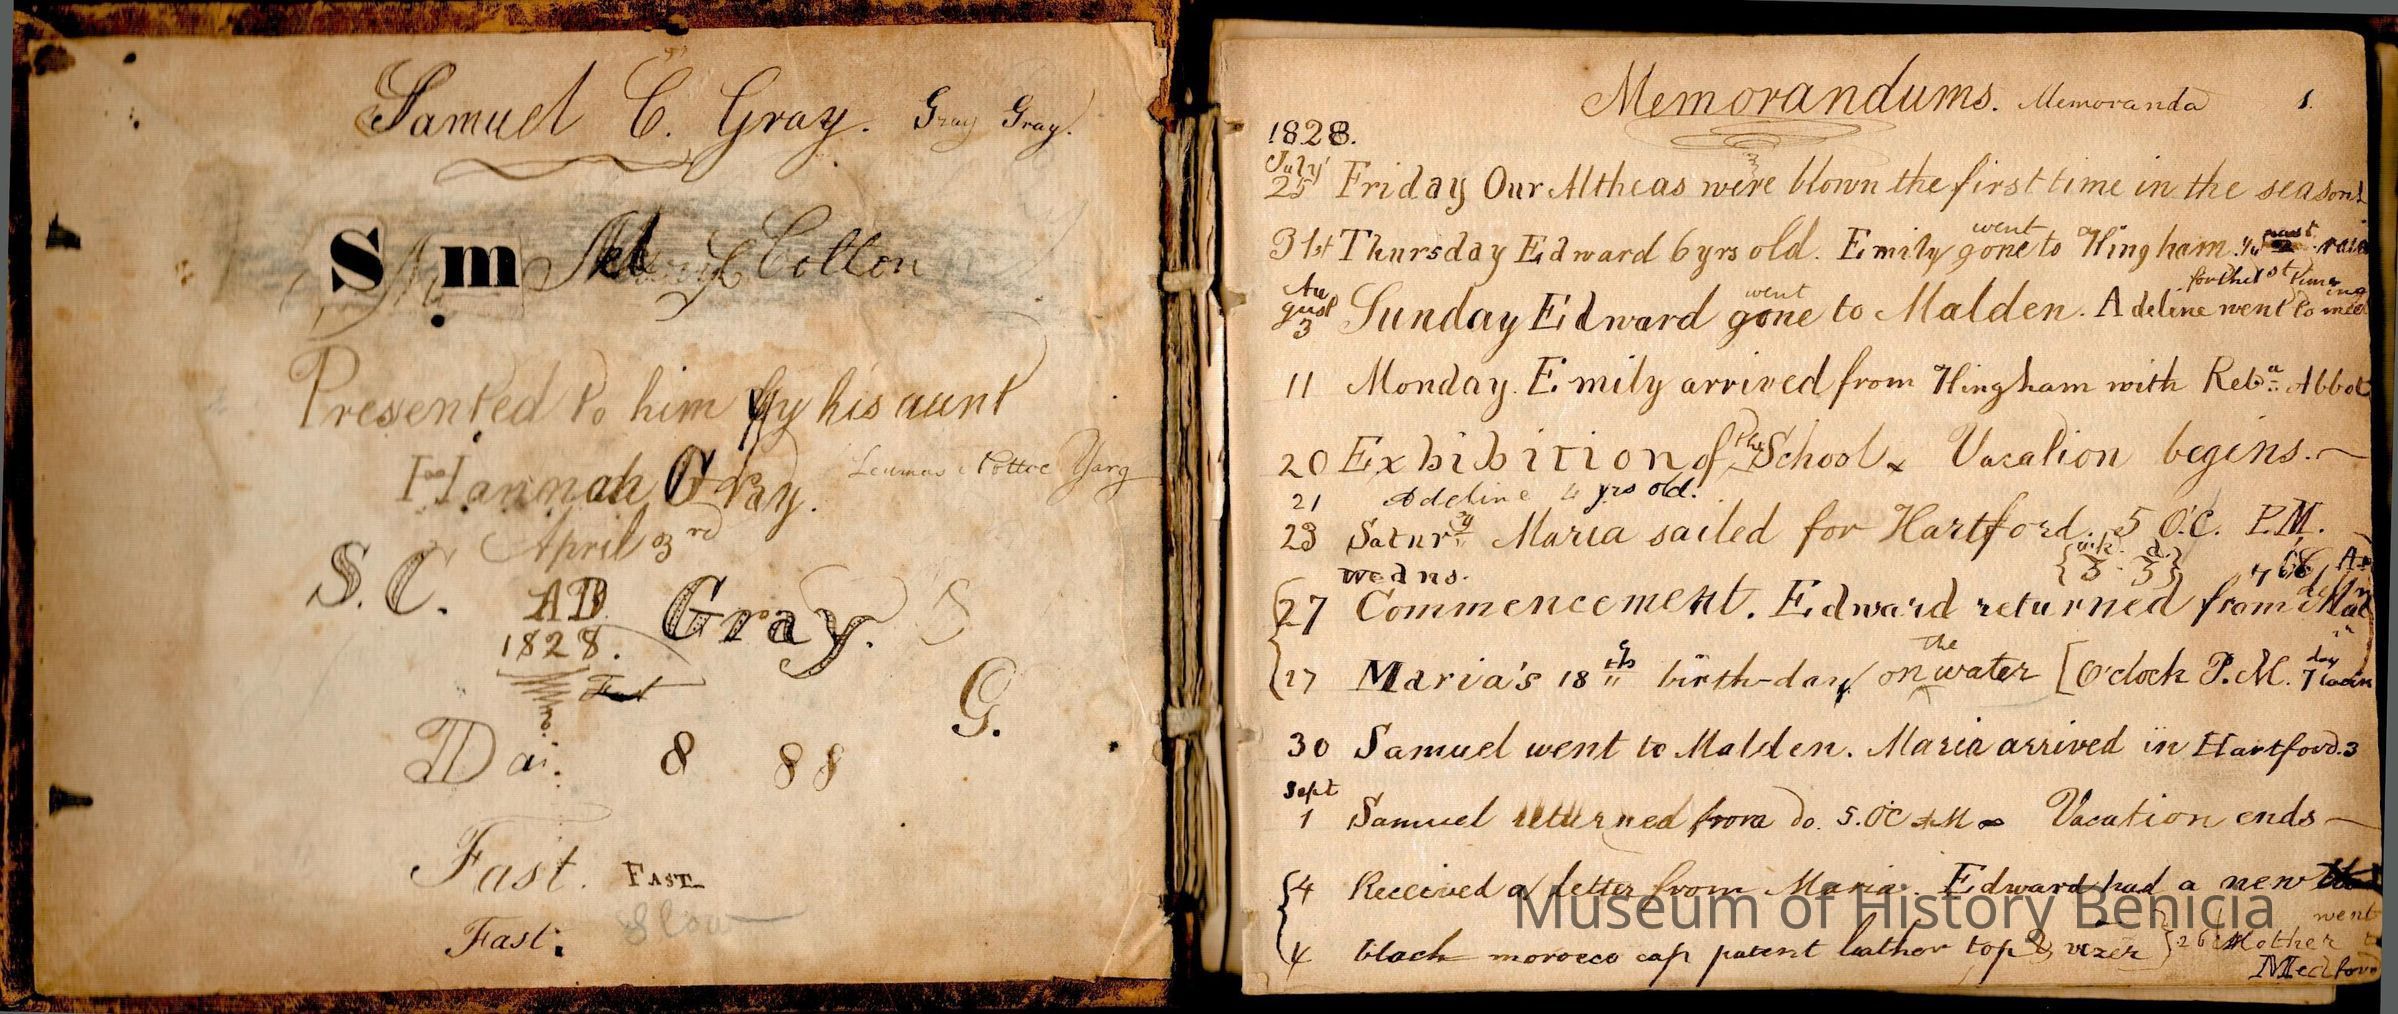 Samuel C. Gray. Gray Gray.
S m Cotton
Presented to him by his aunt
Hannah Gray.
Leumas Nottoc Yarg
April 3rd
S. C. Gray. S
AD.
1828.
Fast
G.
Dai. 8 88
Fast. FAST
Fast. Slow
Memorandums. Memoranda 1.
1828.
July
25 Friday Our Altheas were blown the first time in the season
31st Thursday Edward 6 yrs old. Emily gone went to Hingham.
for the 1st time
August
3 Sunday Edward gone went to Malden. Adeline went to meeting
11 Monday. Emily arrived from Hingham with Reba Abbot
20 Exhibition of the School Vacation begins.
21 Adeline 4 yrs old.
23 Satury Maria sailed for Hartford. 5 O.C. P.M.
wedns. {wk. d. 3 - 5}
27 Commencement. Edward returned from Malden
27 Maria's 18th birth-day on the water [O'clock P.M.
30 Samuel went to Malden. Maria arrived in Hartford. 3
Sept
1 Samuel returned from do. 5. OC Vacation ends
4 Received a letter from Maria. Edward had a new
4 black morocco cap patent leather top & vizer } 26 Mother went
Medford
Museum of History Benicia